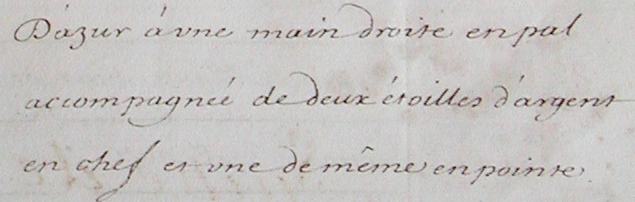 D'azur à vne main droite en pal
accompagnéé de deux étoilles d'argent
en chef et vne de même en pointe